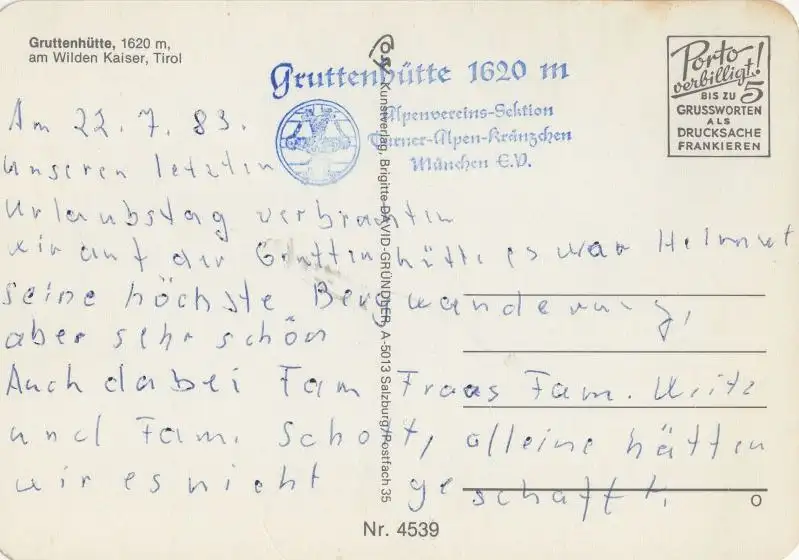 Gruttenhütte, 1620 m,
am Wilden Kaiser, Tirol
Gruttenhütte 1620 m
Alpenvereins-Sektion
Turner-Alpen-Kränzchen
München E.V.
Porto
verbilligt!
BIS ZU 5
GRUSSWORTEN
ALS
DRUCKSACHE
FRANKIEREN
Am 22.7.83.
Unseren letzten
Urlaubstag verbrachten
wir auf der Gruttenhütte es war Helmut
seine höchste Bergwanderung,
aber sehr schön
Auch dabei Fam Fraas Fam.
und Fam. Schott, alleine hätten
wir es nicht geschafft.
Kunstverlag, Brigitte DAVID-GRÜNDLER, A-5013 Salzburg/Postfach 35
Nr. 4539